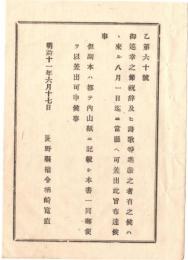 乙第六十號
御巡幸之節祝辞及ヒ詩歌等奉獻之者有之候ハ
、来ル八月一日迄ニ當廳へ可差出此旨布達候
事
但副本ハ都テ内山紙ニ記載シ本書一同郵便
ヲ以差出可申候事
明治十一年六月十七日
長野縣權令楢崎寛直